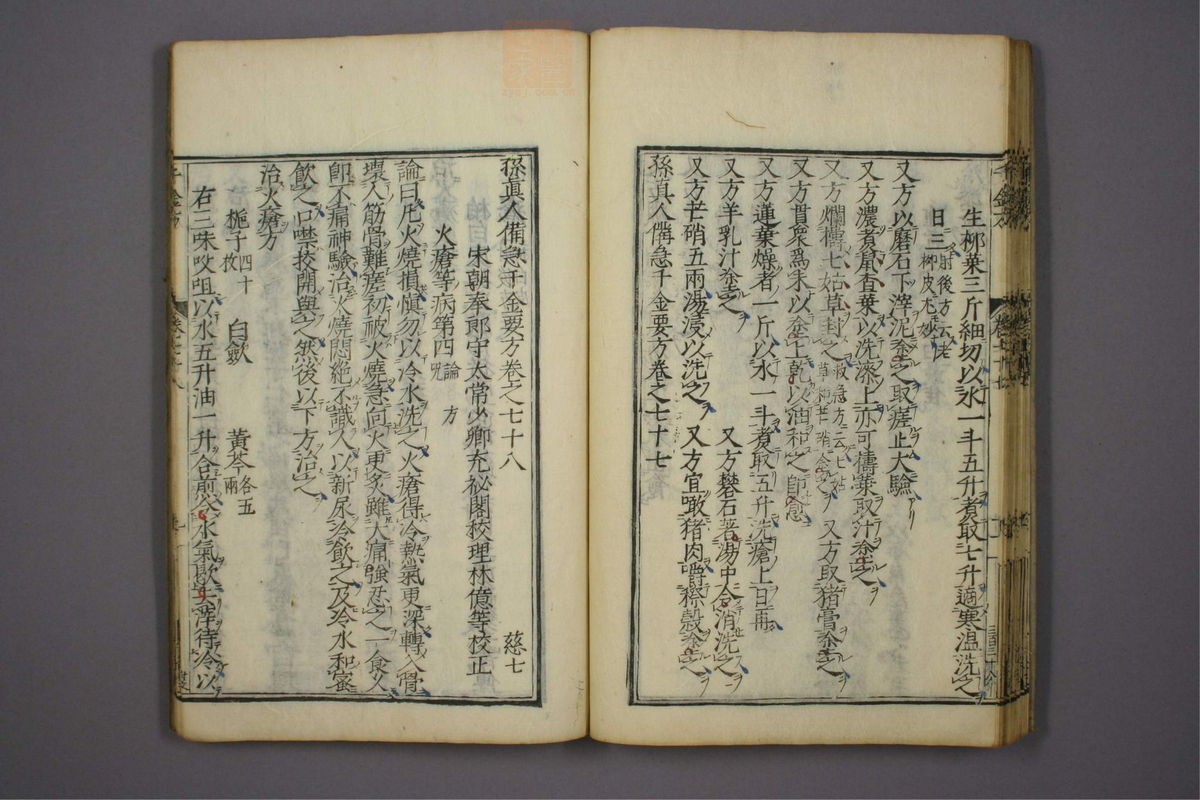 生栁葉三斤細切以水一斗五升煮取七升適寒温洗之
日三 肘後方云老栁皮尤妙
又方以磨石下滓泥傅之取瘥止大驗
又方濃煮以洗漆上亦可擣葉取汁傅之
又方爛擣七姑草封之 救急方云七姑草和芒硝塗之 又方取猪膏塗之
又方貫衆爲末以塗上乾以油和之即愈
又方蓮葉燥者一斤以水一斗煮取五升洗瘡上日再
又方羊乳汁塗之 又方礬石著湯中令消洗之
又方芒硝五兩湯浸以洗之 又方宜噉猪肉嚼穄穀塗之
孫真人備急千金要方卷之七十七
孫真人備急千金要方卷之七十八 慈七
宋朝奉郎守太常少卿充祕閣校理林億等校正
火瘡等病第四 論 方 呪
論曰凡火燒損慎勿以冷水洗之火瘡得冷熱氣更深轉入骨
壞人筋骨難瘥初被火燒急向火更炙雖大痛強忍之一食久
即不痛神驗治火燒悶絶不識人以新尿冷飲之及冷水和蜜
飲之口噤挍開與之然後以下方治之
治火瘡方
梔子四十枚 白歛 黃芩各五兩
右三味㕮咀以水五升油一升合煎令水氣歇去滓待冷以